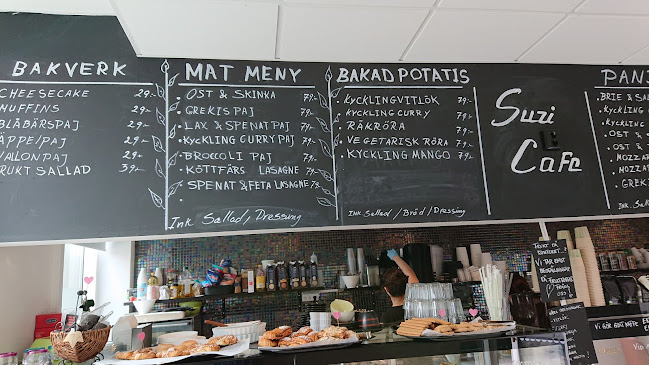 BAKVERK
CHEESECAKE 29:-
MUFFINS 29:-
BLÅBÄRSPAJ 29:-
ÄPPELPAJ 29:-
HALLONPAJ 29:-
FRUKT SALLAD 39:-
MAT MENY
• OST & SKINKA 79:-
• GREKIS PAJ 79:-
• LAX & SPENAT PAJ 79:-
• KYCKLING CURRY PAJ 79:-
• BROCCOLI PAJ 79:-
• KÖTTFÄRS LASAGNE 79:-
• SPENAT & FETA LASAGNE 79:-
Ink Sallad / Dressing
BAKAD POTATIS
• KYCKLINGVITLÖK 79:-
• KYCKLING CURRY 79:-
• RÄKRÖRA 79:-
• VEGETARISK RÖRA 79:-
• KYCKLING MANGO 79:-
Ink. Sallad / Bröd / Dressing
Suzi
E
Cafe
PANI
• BRIE & SA
• KYCKLING
• KYCKLING
• OST &
• OST &
• MOZZAR
• MOZZA
• GREKIS
Ink. Sallad